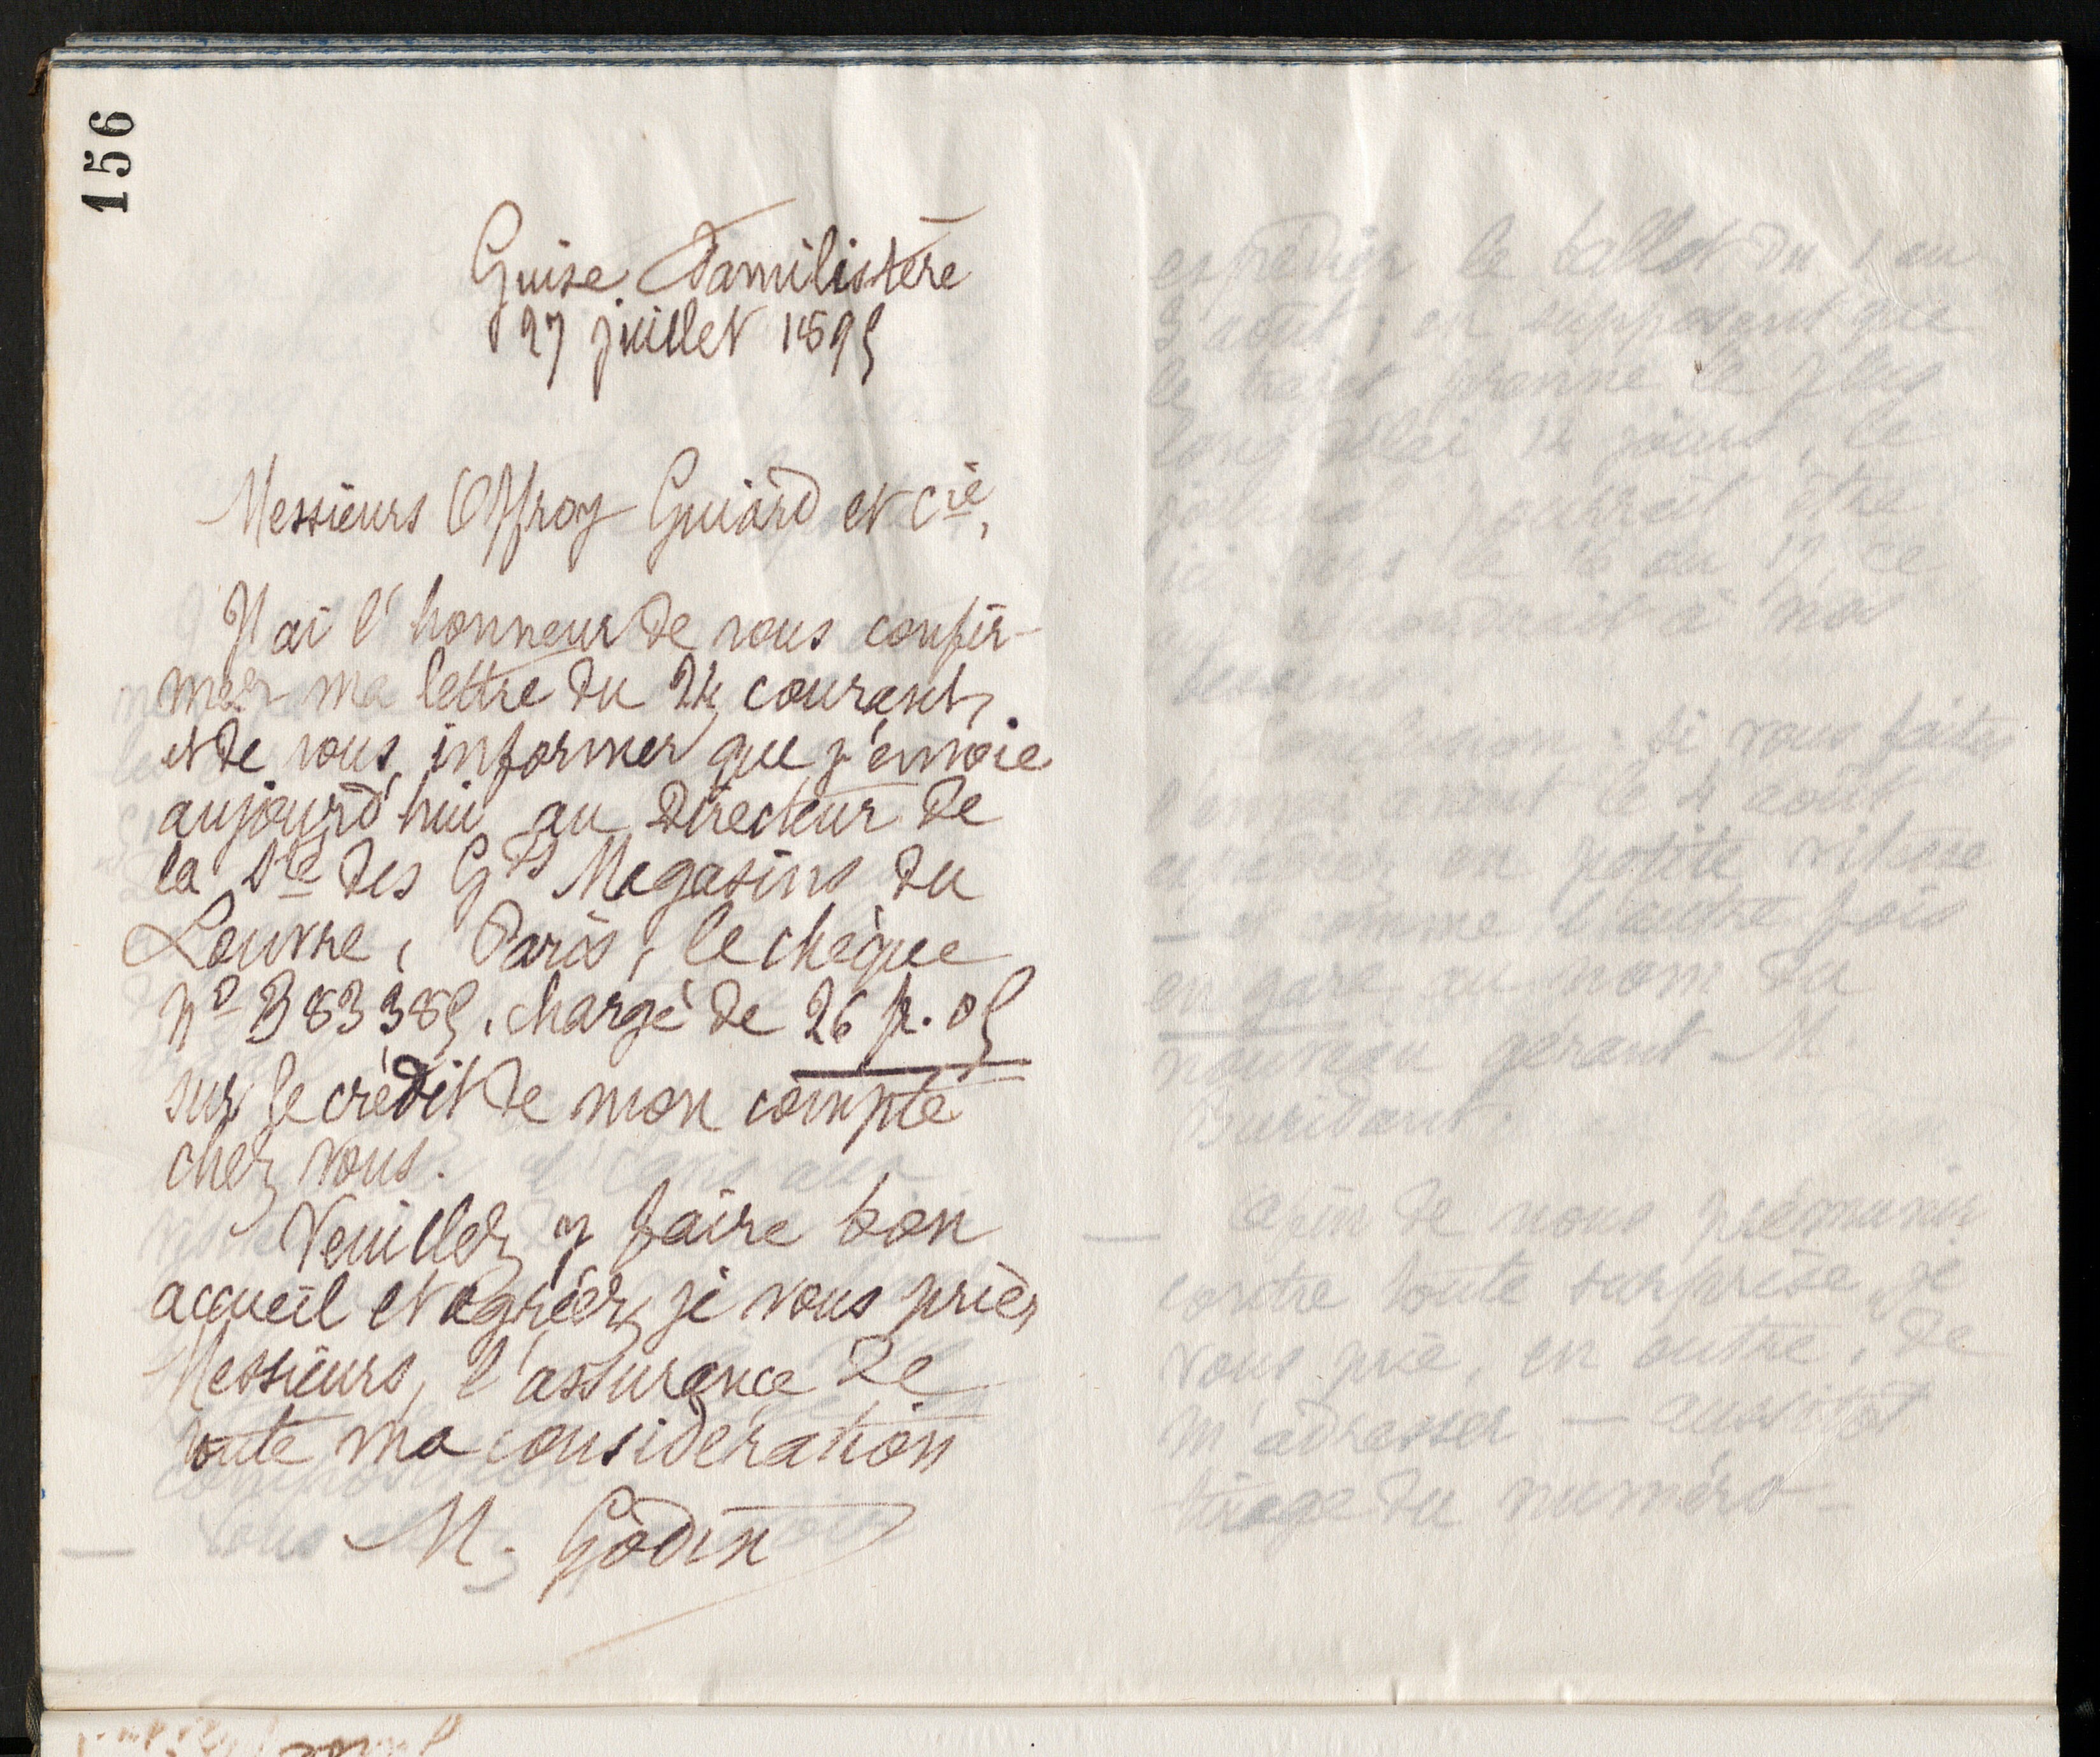 156
Guise Familistère
27 juillet 1895
Messieurs Offroy Guiard et Cie,
J'ai l'honneur de vous confir-
mer ma lettre du 24 courant,
et de vous informer que j'envoie
aujourd'hui au Directeur de
la Sté des Gds Magasins du
Louvre, Paris, le chèque
No B 83385, chargé de 26 f. 05
sur le crédit de mon compte
chez vous.
Veuillez y faire bon
accueil et agréer, je vous prie,
Messieurs, l'assurance de
toute ma considération
M. Godin
le ballot du 1 au
3 août, en supposant que
le trajet prenne le plus
long délai 14 jours, le
pourrait être
ici vers le 16 ou 17, ce
à nos
besoins.
si vous faites
avant le 4 août
en petite vitesse
comme l'autre fois
en gare au nom du
nouveau gérant M.
Buridant.
Afin de nous prémunir
contre toute surprise, je
vous prie, en outre, de
m'adresser — aussitôt
tirage du numéro —